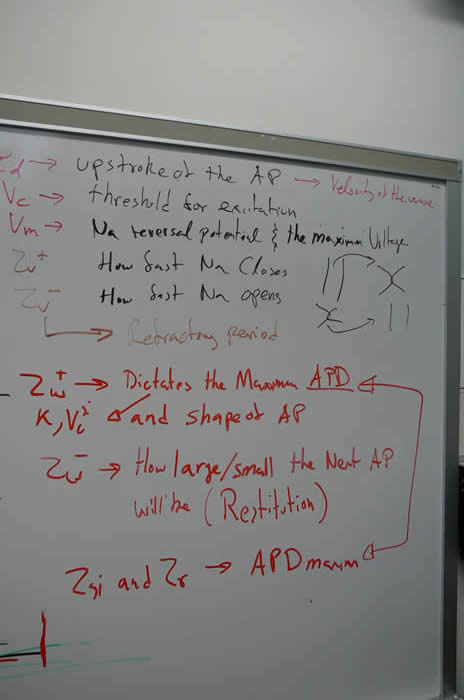 τd → upstroke of the AP → Velocity of the wave
Vc → threshold for exitation
Vm → Na reversal potential & the maximum Voltage
τv+ How fast Na Closes
τv- How fast Na opens
→ Refractory period
τw+ → Dictates the Maximum APD
K, Vc and shape of AP
τw- → How large/small the Next AP
will be (Restitution)
τsi and τr → APD maximum